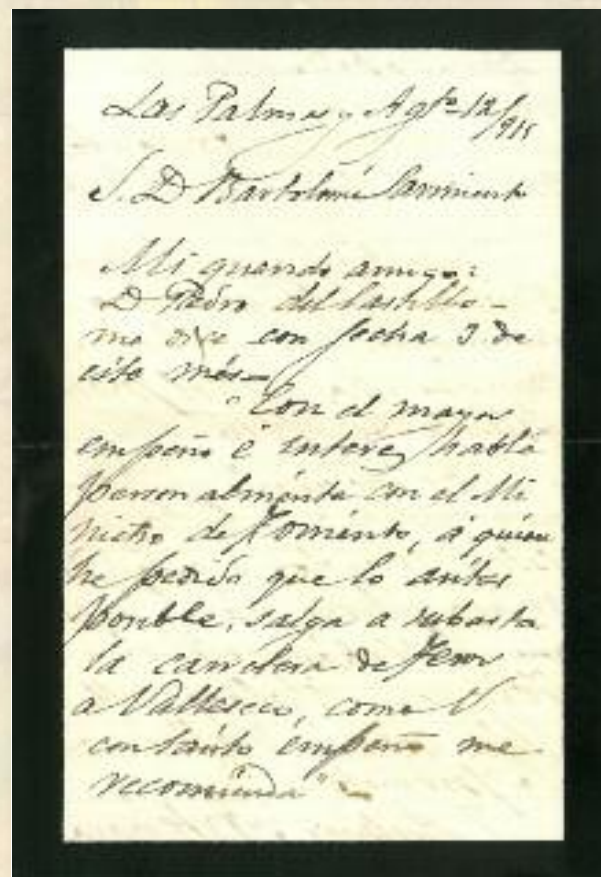 Las Palmas y Agto 12/915
S. D. Bartolomé Sarmiento
Mi querido amigo:
D. Pedro del Castillo
me dice con fecha 3 de
este mes
"Con el mayor
empeño é interes, hablé
personalmente con el Mi
nistro de Fomento, á quien
he pedido que lo antes
posible, salga a subasta
la carretera de Teror
a Valleseco, como V
con tanto empeño me
recomienda"